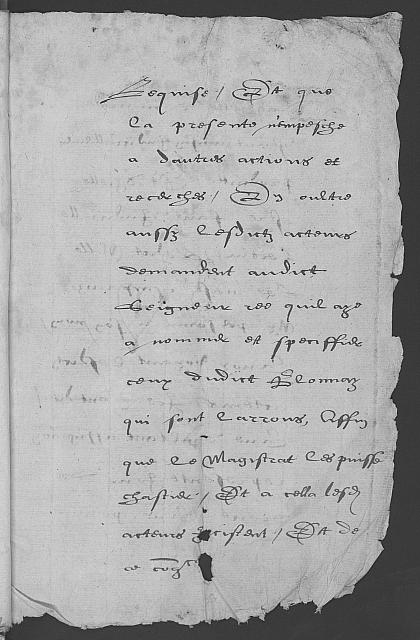 Requise / Et que
la presente n'empesche
a dautres actions et
recerches / En oultre
aussy lesdictz acteurs
demandent audict
Seigneur ree quil aye
a nommer et speciffier
ceux dudict Blonnay
qui sont larrons, Affin
que le Magistrat les puisse
chastier / Et a cella lesd
acteurs incistent / Et de
ce